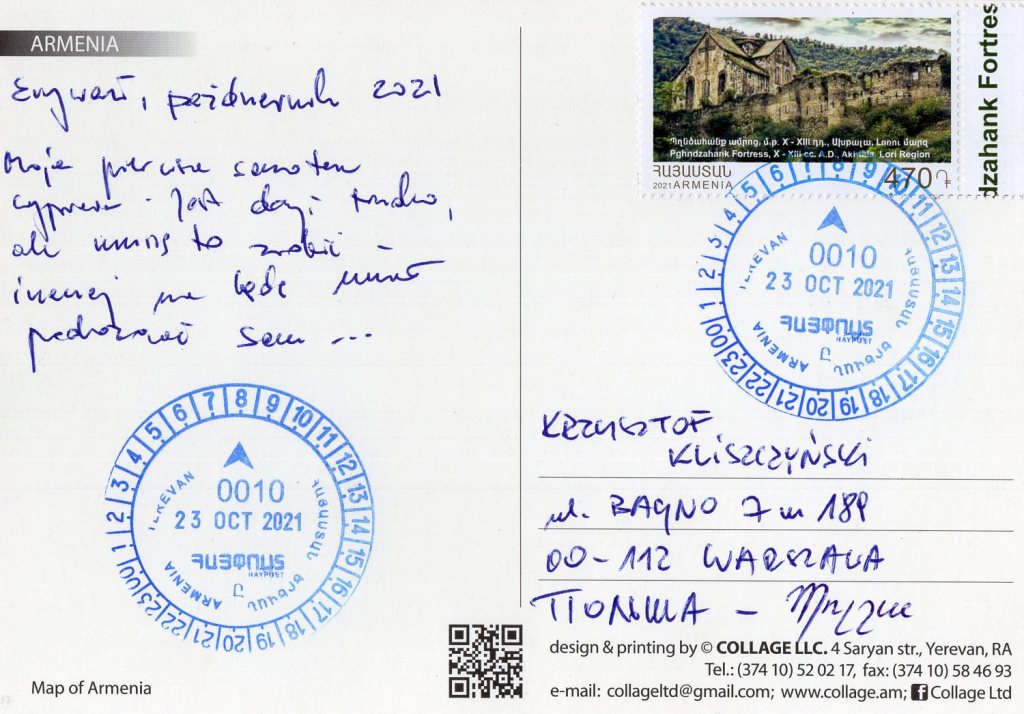 ARMENIA
Erywań, październik 2021
Moje pierwsze samotne
Jest dosyć trudno,
ale muszę to zrobić –
inaczej nie będę umiał
podróżować sam ...
Պղնձահանք ամրոց, մ.թ. X - XIII դդ., Ախթալա, Լոռու մարզ
Pghndzahank Fortress, X - XIII cc. A.D., Akhtala, Lori Region
ՀԱՅԱՍՏԱՆ
2021 ARMENIA
470 ֏
dzahank Fortres
00 1 2 3 4 5 6 7 8 9 10 11 12 13 14 15 16 17 18 19 20 21 22 23
YEREVAN
0010
23 OCT 2021
ՀԱՅՓՈՍՏ
HAYPOST
ARMENIA
ՀԱՅԱՍՏԱՆ
KRZYSZTOF
KLISZCZYŃSKI
ul. BAGNO 7 m 189
00-112 WARSZAWA
ПОЛЬША –
00 1 2 3 4 5 6 7 8 9 10 11 12 13 14 15 16 17 18 19 20 21 22 23
YEREVAN
0010
23 OCT 2021
ՀԱՅՓՈՍՏ
HAYPOST
ARMENIA
ՀԱՅԱՍՏԱՆ
Map of Armenia
design & printing by © COLLAGE LLC. 4 Saryan str., Yerevan, RA
Tel.: (374 10) 52 02 17, fax: (374 10) 58 46 93
e-mail: collageltd@gmail.com; www.collage.am; Collage Ltd